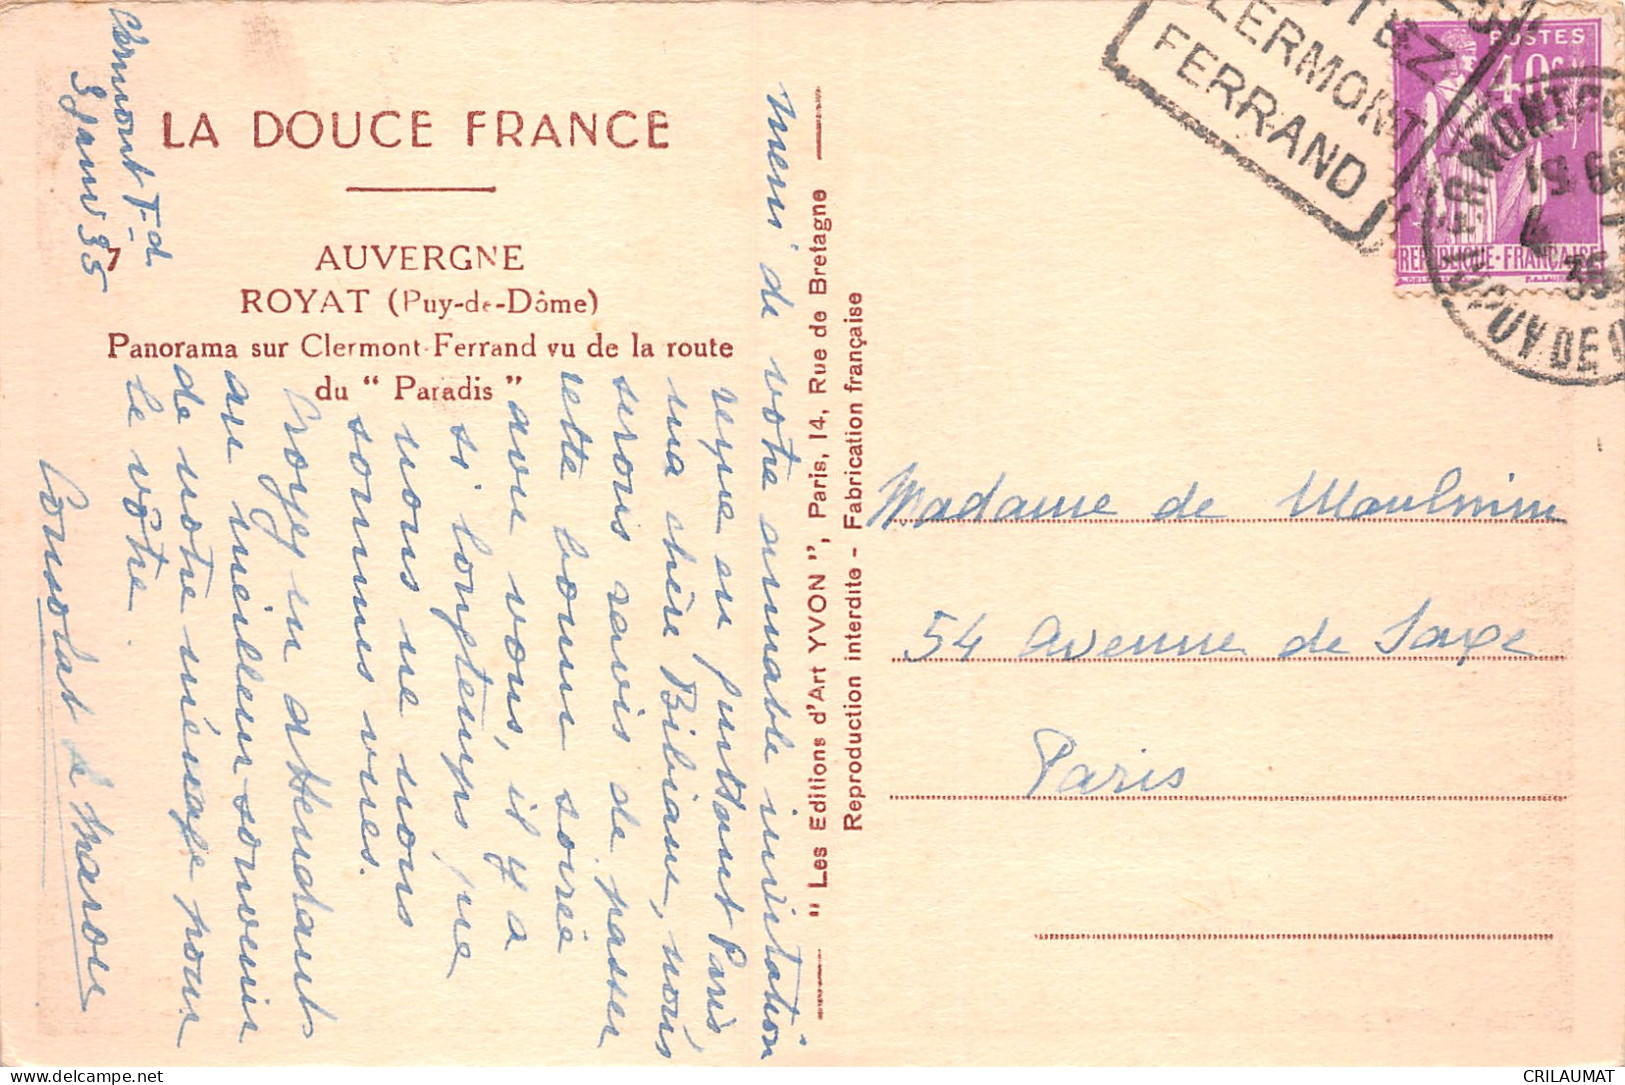 LA DOUCE FRANCE
AUVERGNE
ROYAT (Puy-de-Dôme)
Panorama sur Clermont-Ferrand vu de la route
du " Paradis "
Clermont F-d
3 janv 35
Merci de votre aimable invitation
reçue en quittant Paris
ma chère Bibiane, nous
serons ravis de passer
cette bonne soirée
avec vous, il y a
si longtemps que
nous ne nous
sommes vues.
Croyez en attendant
au meilleur souvenir
de notre ménage pour
le vôtre
Consolat de
" Les Editions d'Art YVON ", Paris, 14, Rue de Bretagne
Reproduction interdite - Fabrication française
CLERMONT
FERRAND
POSTES
40c
REPUBLIQUE-FRANÇAISE
35
Madame de
54 Avenue de Saxe
Paris
CRILAUMAT